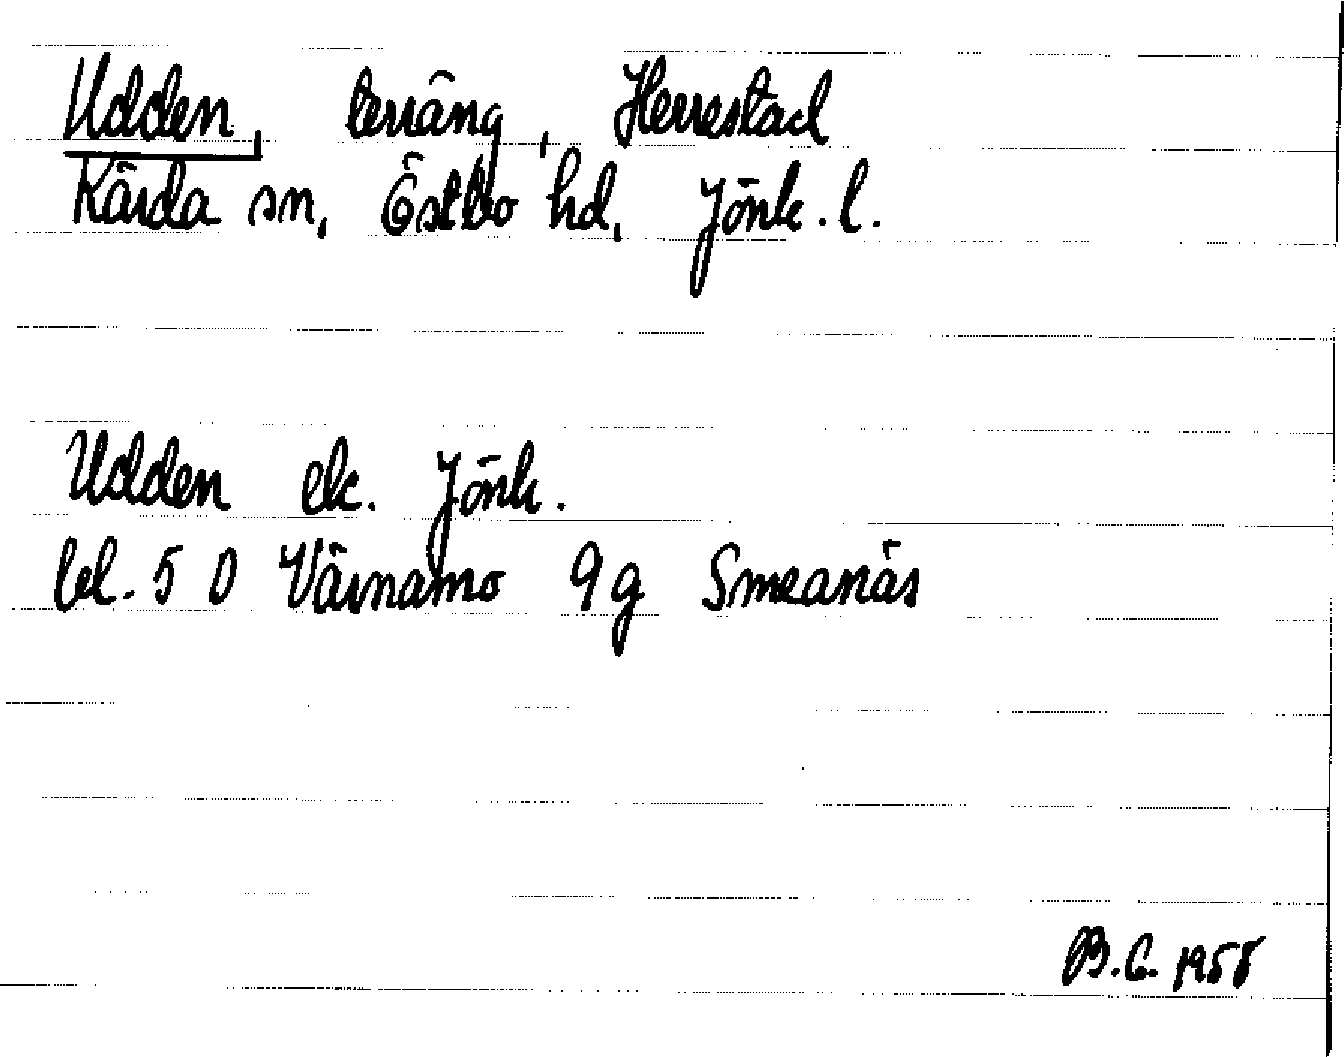 Udden, terräng, Herrestad
Kärda sn, Östbo hd, Jönk. l.
Udden ek. Jönk.
bl. 5 D Värnamo 9g Smeanäs
B.G. 1958